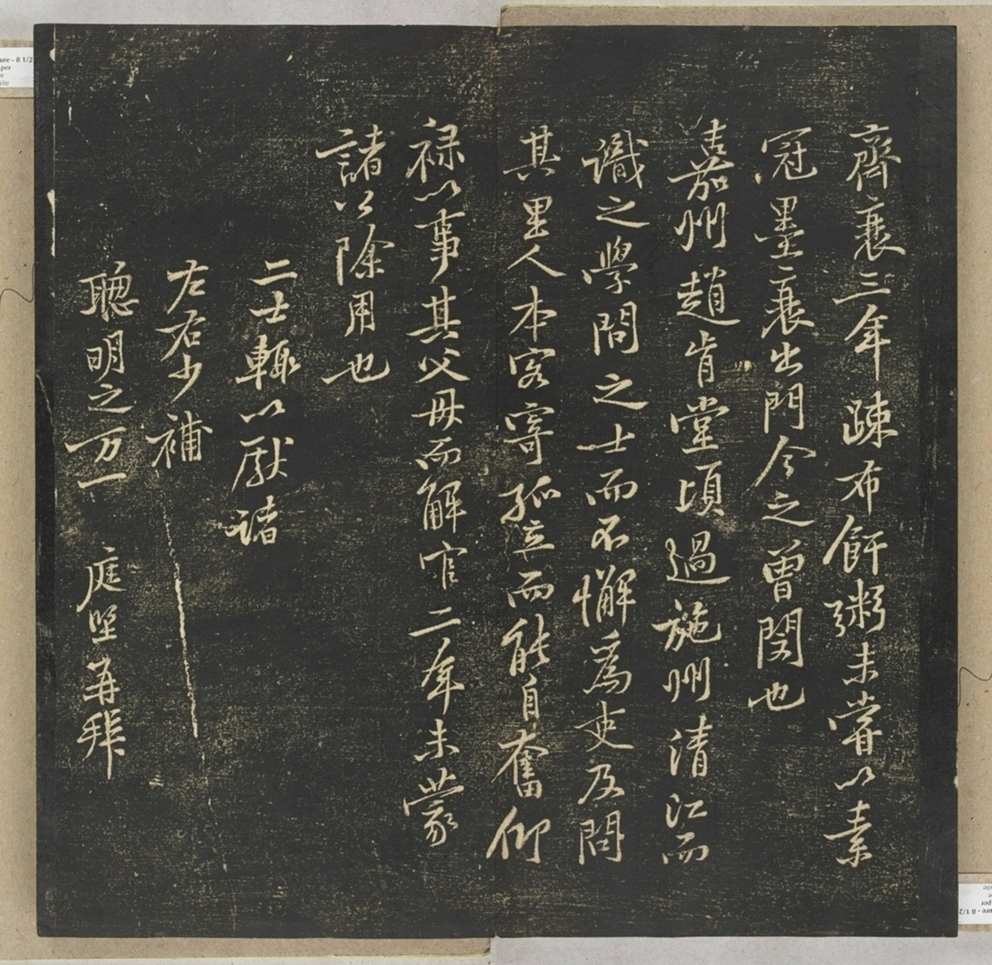 齊衰三年疎布飦粥未嘗以素
冠墨衰出門今之曾閔也
嘉州趙肯堂頃過施州清江而
識之學問之士而不懈為吏及問
其里人本客寄孤立而能自奮仰
禄以事其父母而解官二年未蒙
諸以除用也
二士輙以獻諸
左右少補
聰明之万一 庭堅再拜